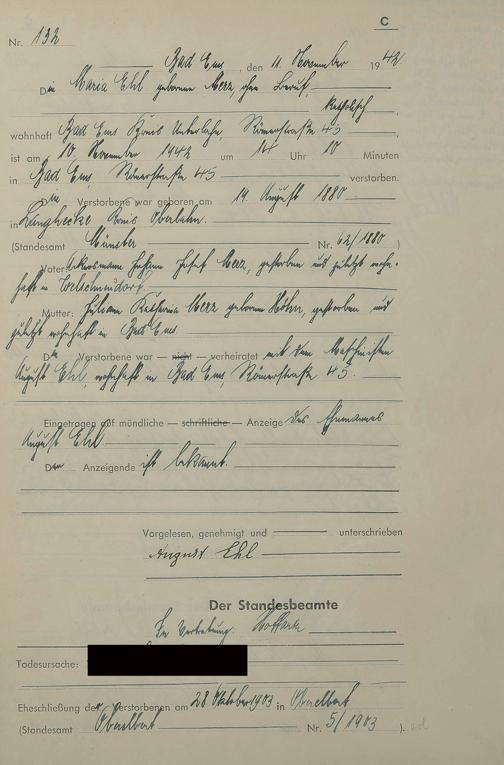 C
Nr. 132
Bad Ems, den 11. November 1942
Die Maria Ehl geborene Merz, ohne Beruf,
katholisch,
wohnhaft Bad Ems Kreis Unterlahn, Römerstraße 45,
ist am 10. November 1942 um 14 Uhr 10 Minuten
in Bad Ems, Römerstraße 45 verstorben.
Die Verstorbene war geboren am 19. August 1880
in Langhecke Kreis Oberlahn.
(Standesamt Münster Nr. 62/1880)
Vater: Ackersmann Johann Josef Merz, gestorben und zuletzt wohn-
haft in Welschneudorf.
Mutter: Katharina Merz geborene Höhn, gestorben und
zuletzt wohnhaft in Bad Ems
Die Verstorbene war — nicht — verheiratet mit dem Maschinisten
August Ehl, wohnhaft in Bad Ems, Römerstraße 45.
Eingetragen auf mündliche — schriftliche — Anzeige des Ehemannes
August Ehl.
Der Anzeigende ist bekannt.
Vorgelesen, genehmigt und unterschrieben
August Ehl
Der Standesbeamte
In Vertretung:
Todesursache:
Eheschließung der Verstorbenen am 28. Oktober 1903 in Oberelbert
(Standesamt Oberelbert Nr. 5/1903).